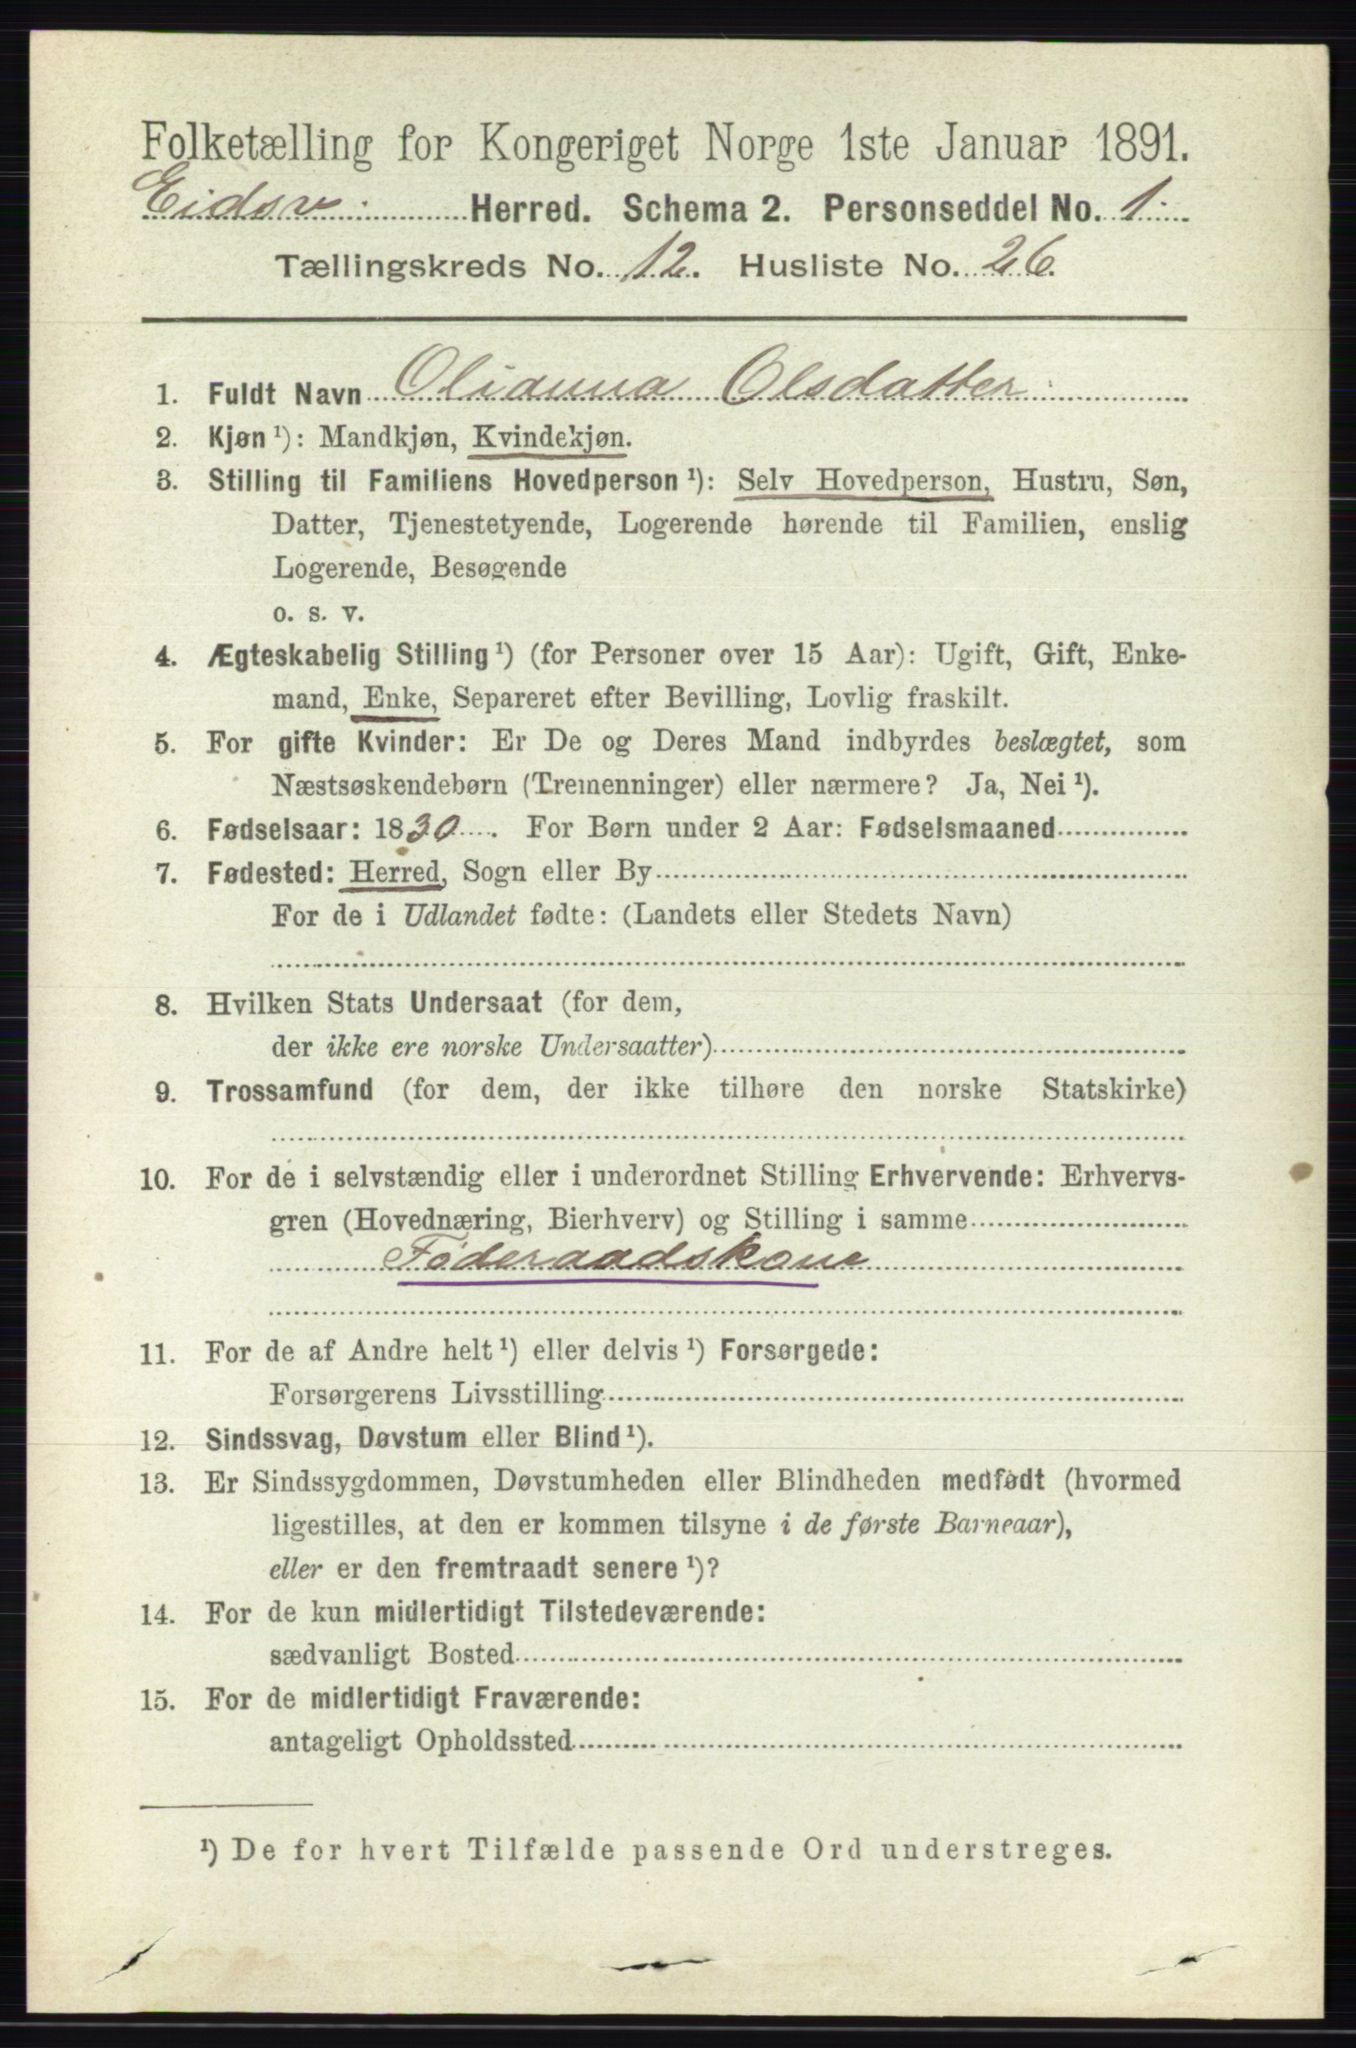 Folketælling for Kongeriget Norge 1ste Januar 1891.
Eidsv. Herred. Schema 2. Personseddel No. 1
Tællingskreds No. 12. Husliste No. 26.
1. Fuldt Navn Olianna Olsdatter
2. Kjøn ¹): Mandkjøn, Kvindekjøn.
3. Stilling til Familiens Hovedperson ¹): Selv Hovedperson, Hustru, Søn,
Datter, Tjenestetyende, Logerende hørende til Familien, enslig
Logerende, Besøgende
o. s. v.
4. Ægteskabelig Stilling ¹) (for Personer over 15 Aar): Ugift, Gift, Enke-
mand, Enke, Separeret efter Bevilling, Lovlig fraskilt.
5. For gifte Kvinder: Er De og Deres Mand indbyrdes beslægtet, som
Næstsøskendebørn (Tremenninger) eller nærmere? Ja, Nei ¹).
6. Fødselsaar: 1830. For Børn under 2 Aar: Fødselsmaaned
7. Fødested: Herred, Sogn eller By
For de i Udlandet fødte: (Landets eller Stedets Navn)
8. Hvilken Stats Undersaat (for dem,
der ikke ere norske Undersaatter)
9. Trossamfund (for dem, der ikke tilhøre den norske Statskirke)
10. For de i selvstændig eller i underordnet Stilling Erhvervende: Erhvervs-
gren (Hovednæring, Bierhverv) og Stilling i samme
Føderaadskone
11. For de af Andre helt ¹) eller delvis ¹) Forsørgede:
Forsørgerens Livsstilling
12. Sindssvag, Døvstum eller Blind ¹).
13. Er Sindssygdommen, Døvstumheden eller Blindheden medfødt (hvormed
ligestilles, at den er kommen tilsyne i de første Barneaar),
eller er den fremtraadt senere ¹)?
14. For de kun midlertidigt Tilstedeværende:
sædvanligt Bosted
15. For de midlertidigt Fraværende:
antageligt Opholdssted
¹) De for hvert Tilfælde passende Ord understreges.